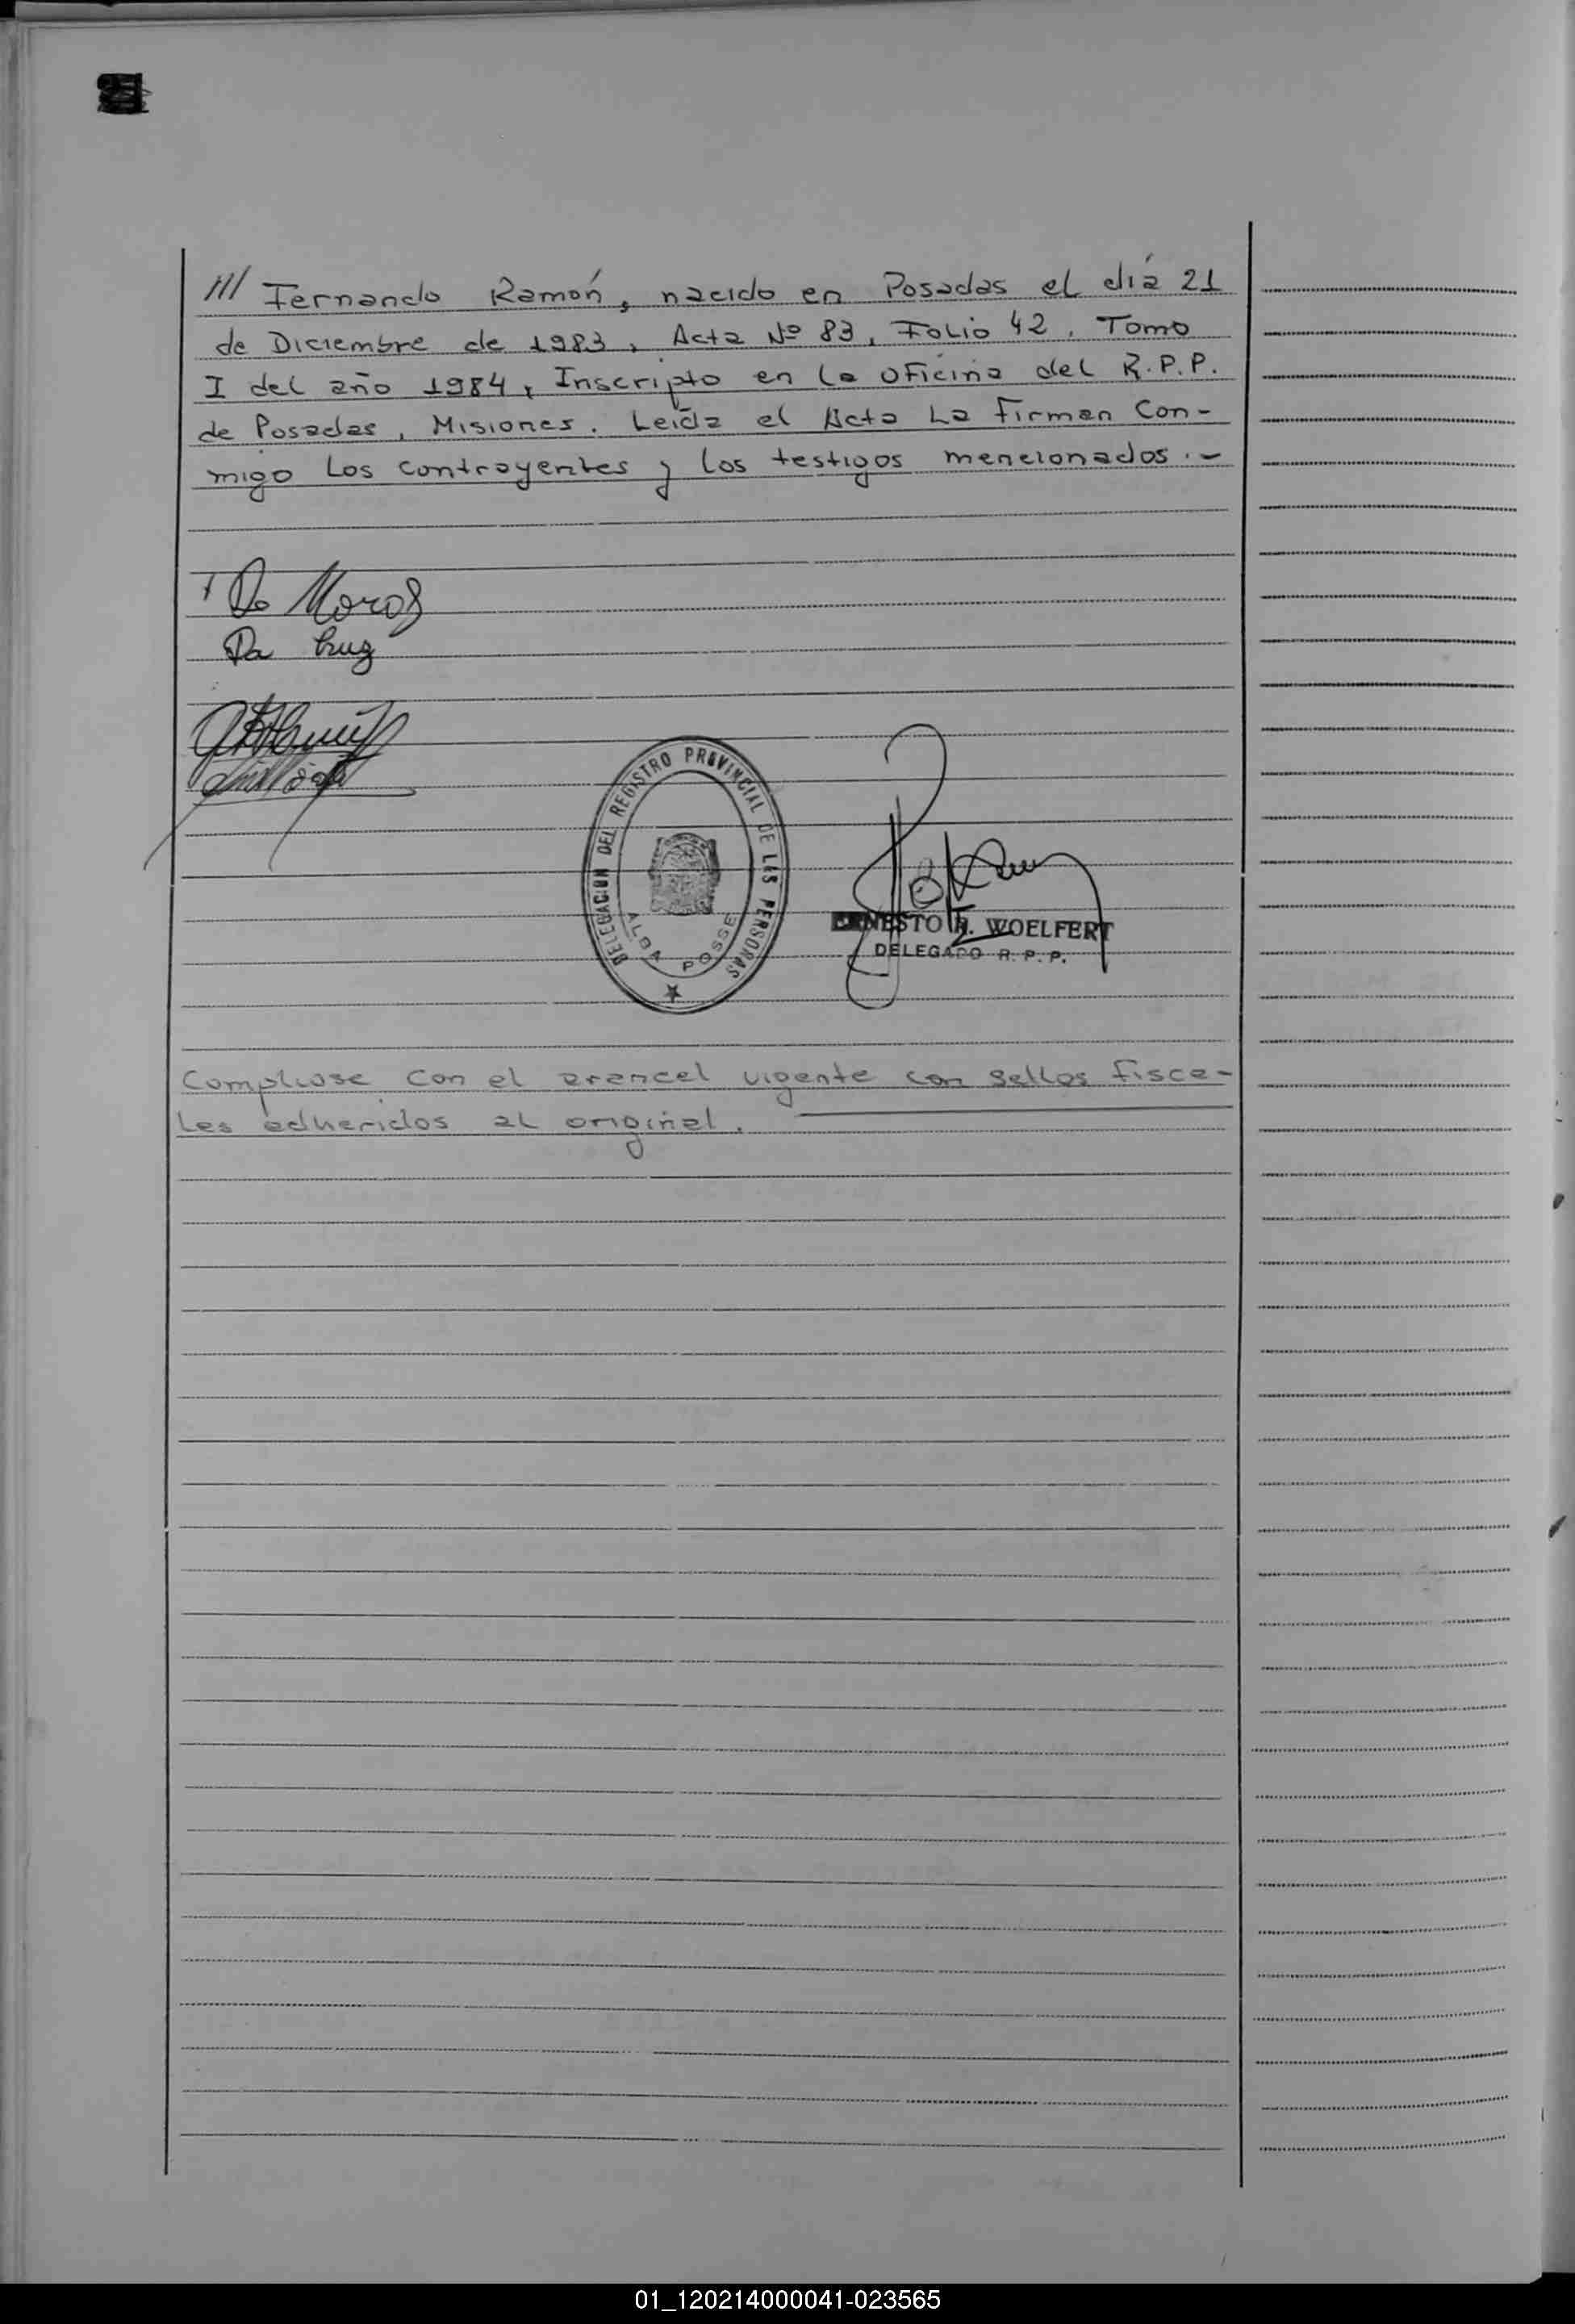 /// Fernando Ramón, nacido en Posadas el día 21
de Diciembre de 1983, Acta Nº 83, Folio 42, Tomo
I del año 1984, Inscripto en la oficina del R.P.P.
de Posadas, Misiones. Leída el Acta La Firman Con-
migo Los contrayentes y los testigos mencionados.-
Da Cruz
DELEGACION DEL REGISTRO PROVINCIAL DE LAS PERSONAS
ALBA POSSE
ERNESTO R. WOELFERT
DELEGADO R.P.P.
Compliose con el arancel vigente con sellos fisca-
les adheridos al original.
01_120214000041-023565